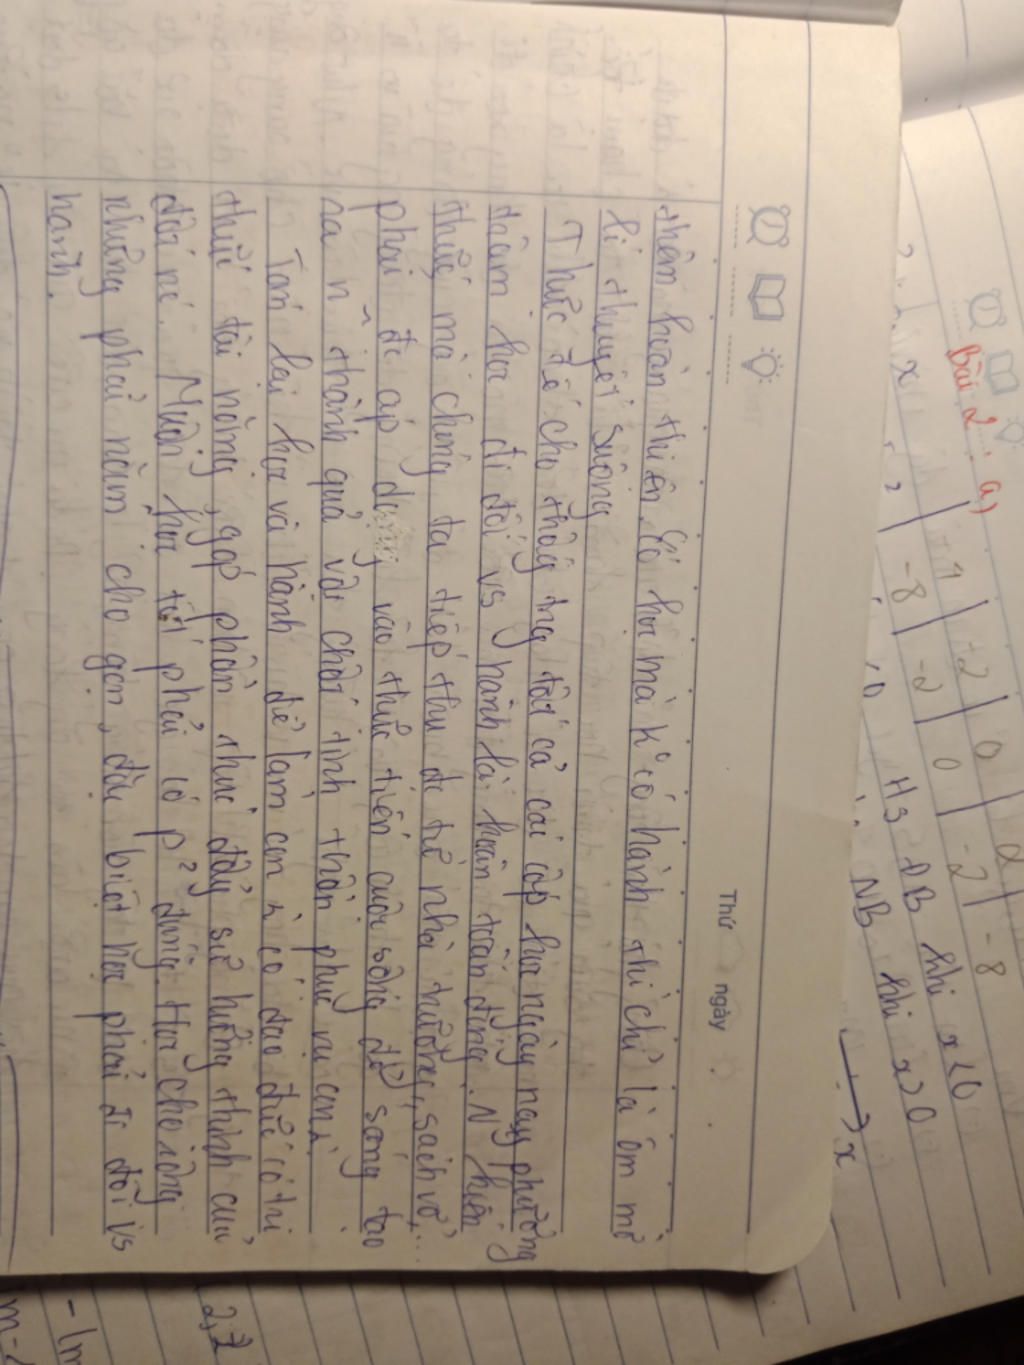 Thứ ngày
thêm hoàn thiện. Có học mà k° có hành thì chỉ là ôm mớ
lí thuyết suông
Thực tế cho thấy trg tất cả các cấp học ngày nay phương
châm học đi đôi vs hành là hoàn toàn đúng. N~ kiến
thức mà chúng ta tiếp thu đc từ nhà trường, sách vở,...
phải đc áp dụng vào thực tiễn cuộc sống để sáng tạo
ra n~ thành quả vật chất tinh thần phục vụ con n`
Tóm lại học và hành để làm con n` có đạo đức có tri
thức tài năng, góp phần thúc đẩy sự hưng thịnh của
đời nc. Muốn học tốt phải có p² đúng. Học cho rộng
nhưng phải nắm cho gọn, đặc biệt học phải đi đôi vs
hành.
Bài 2: a)
x
-8 | -2 | 0 | -2 | -8
HS ĐB khi x<0
NB khi x>0
x
2,7